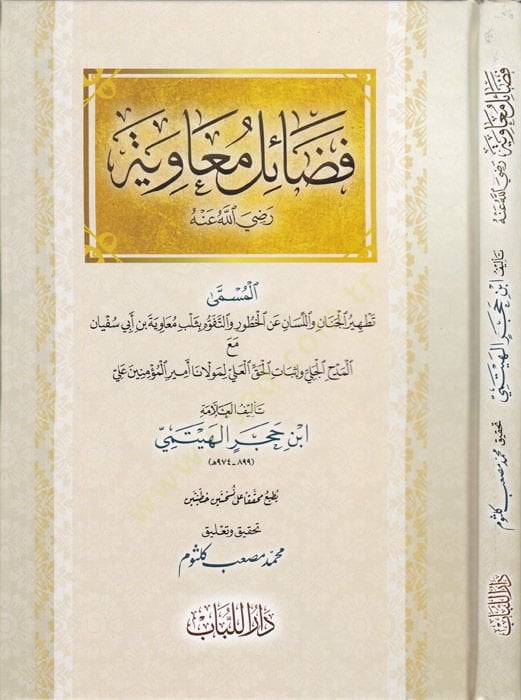 فَضَائِل مُعَاوِيَة
رَضِيَ اللَّهُ عَنْهُ
المُسَمَّى
تَطْهِيرُ الْجَنَانِ وَاللِّسَانِ عَنِ الْخُطُورِ وَالتَّفَوُّهِ بِثَلْبِ مُعَاوِيَةَ بْنِ أَبِي سُفْيَان
مَعَ
المَدْحِ الْجَلِيِّ وَإِثْبَاتِ الْحَقِّ الْعَلِيِّ لِمَوْلَانَا أَمِيرِ الْمُؤْمِنِينَ عَلِيّ
تَأْلِيفُ العَلَّامَةِ
ابْنِ حَجَرٍ الهَيْتَمِيّ
(٨٩٩-٩٧٤هـ)
يُطْبَعُ مُحَقَّقًا عَلَى نُسْخَتَيْنِ خَطِّيَّتَيْنِ
تحقيق وتعليق
محمد مصعب كلثوم
دَارُ اللُّبَابِ
فَضَائِل مُعَاوِيَة رَضِيَ اللَّهُ عَنْهُ
تَأْلِيفُ ابْنِ حَجَرٍ الهَيْتَمِيّ
تحقيق محمد مصعب كلثوم
دَارُ اللُّبَابِ